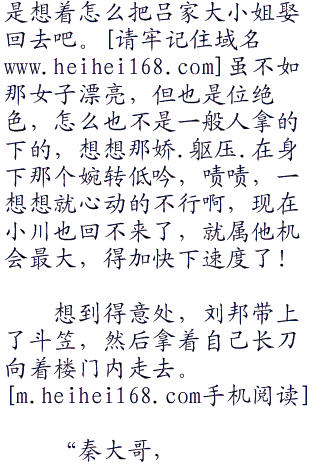 是想着怎么把吕家大小姐娶
回去吧。[请牢记住域名
www.heihei168.com]虽不如
那女子漂亮，但也是位绝
色，怎么也不是一般人拿的
下的，想想那娇.躯压.在身
下那个婉转低吟，啧啧，一
想想就心动的不行啊，现在
小川也回不来了，就属他机
会最大，得加快下速度了！
想到得意处，刘邦带上
了斗笠，然后拿着自己长刀
向着楼门内走去。
[m.heihei168.com手机阅读]
“秦大哥，